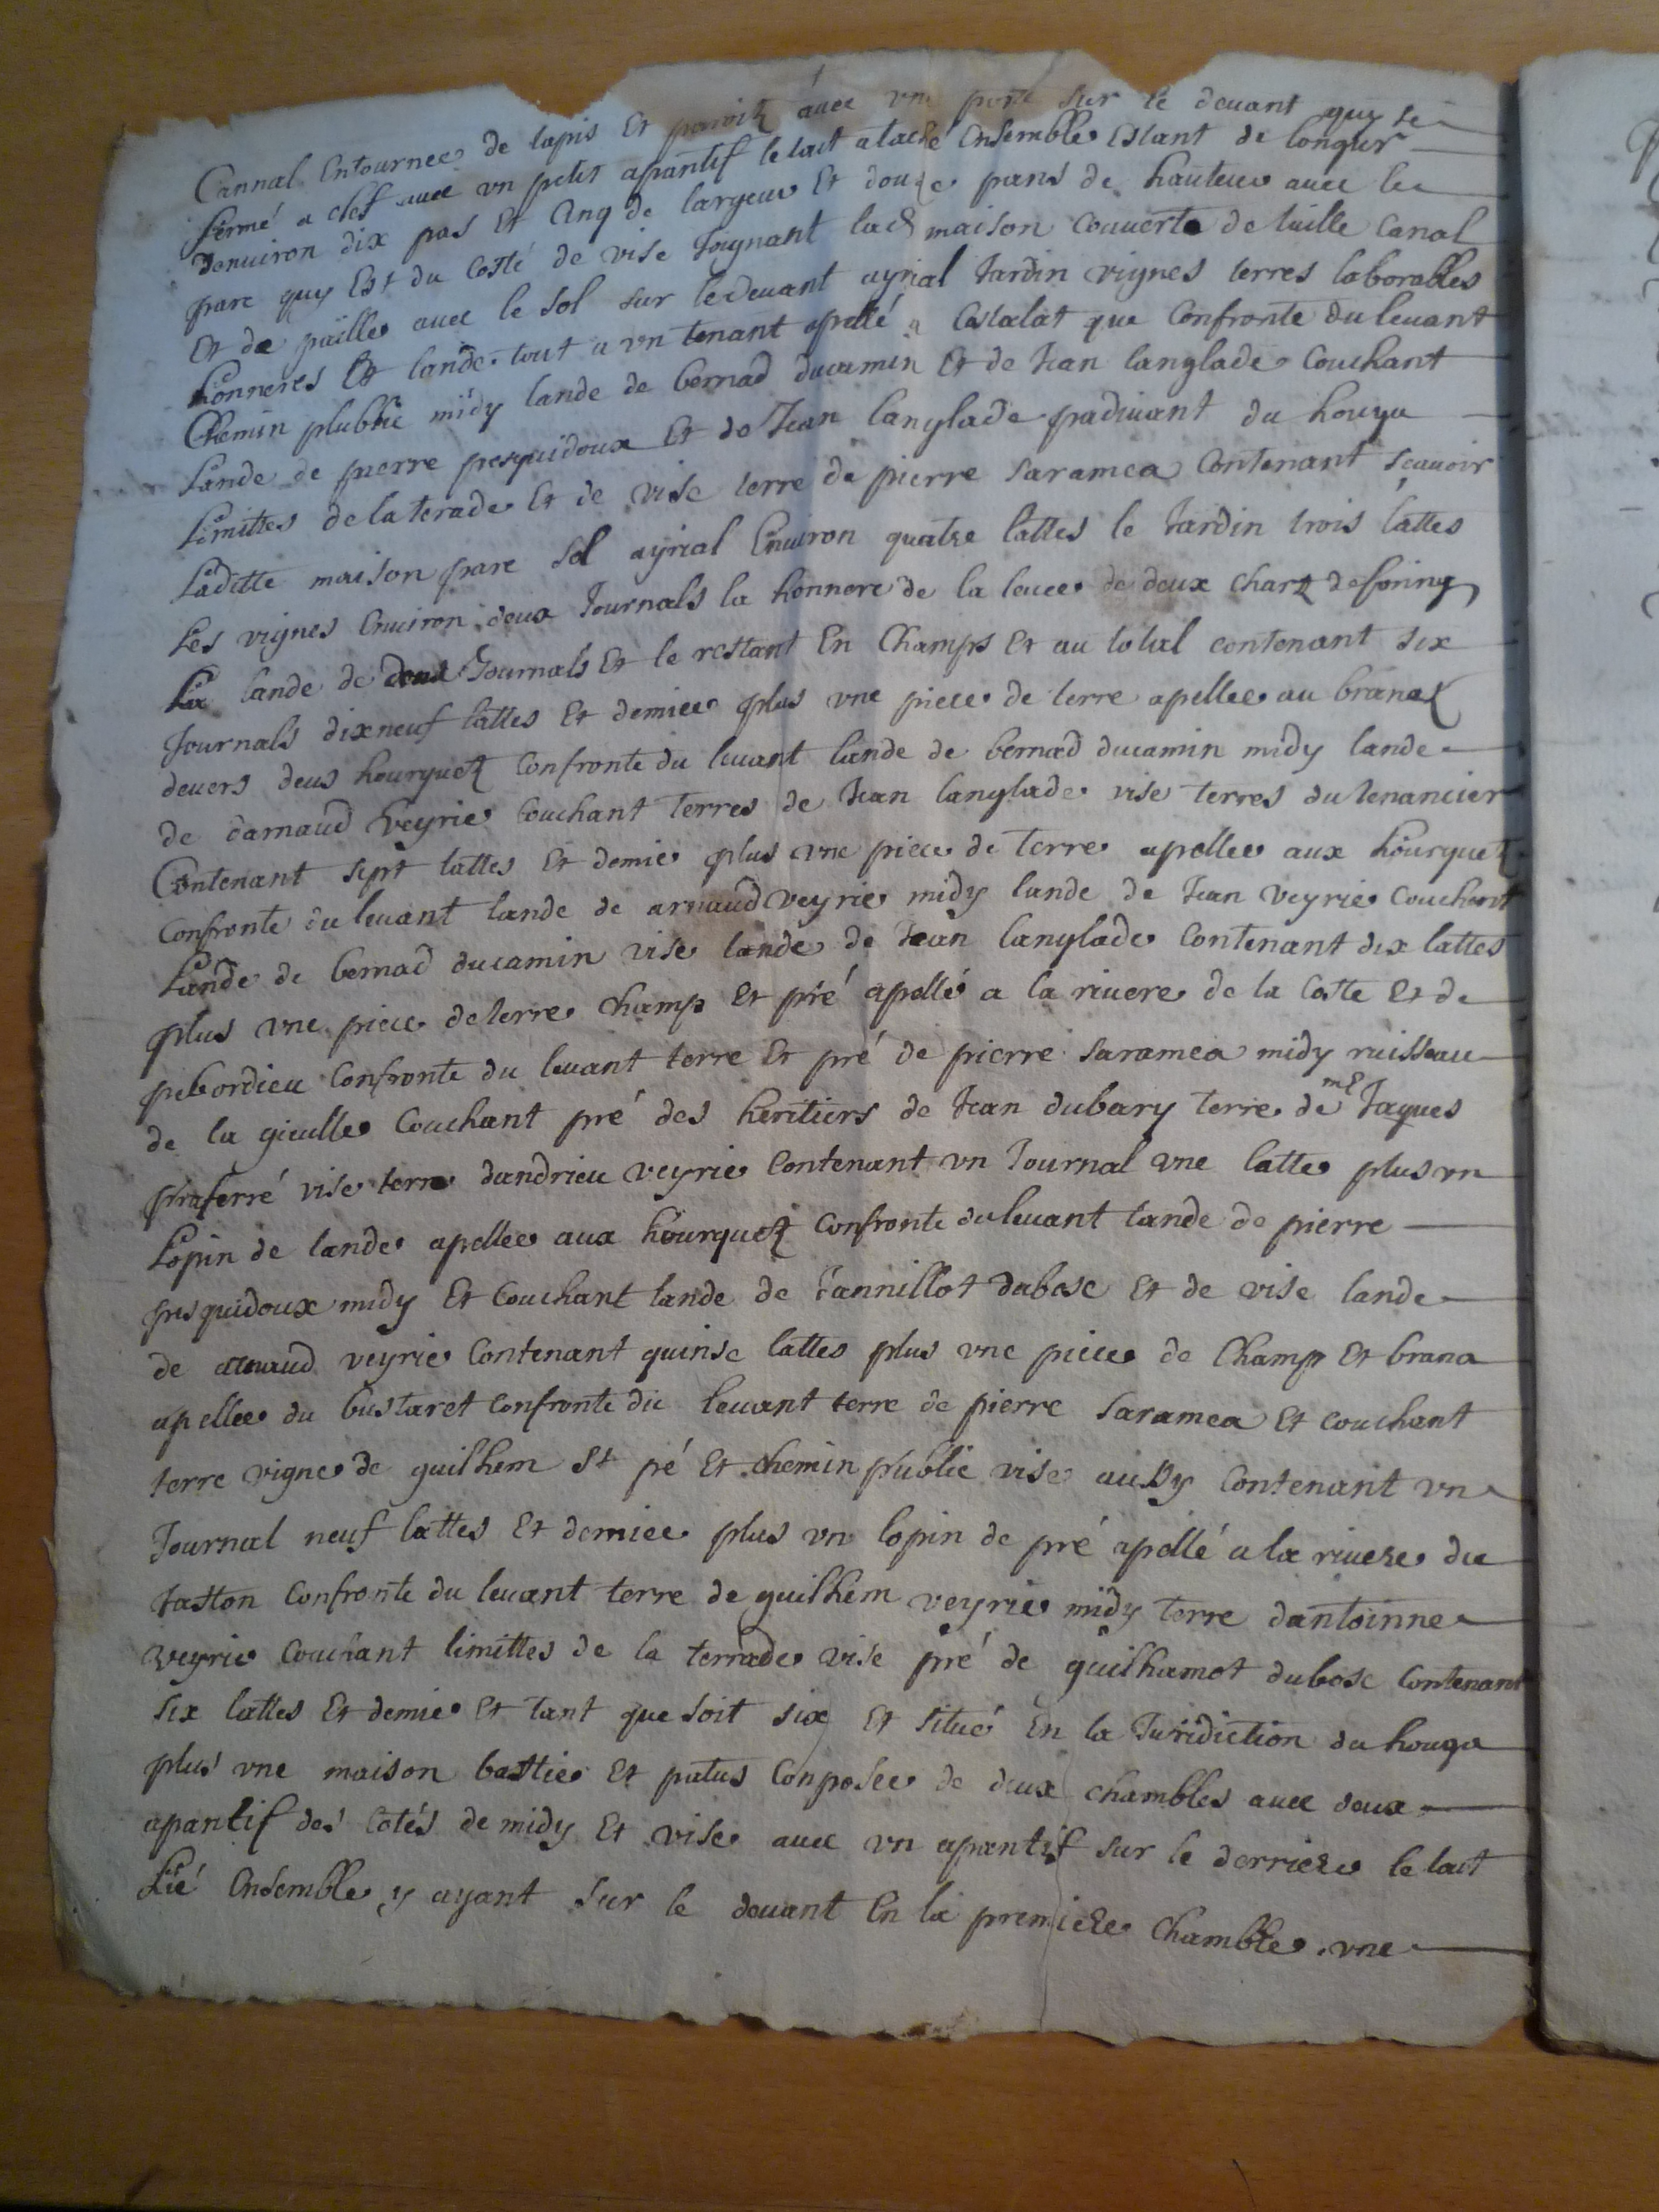 Cannal Entournee de tapis Et paroitz avec vne porte sur le devant quy se
fermé a clef avec vn petit apantif le tout ataché Ensemble Estant de longur
denuiron dix pas Et Cinq de largeur Et douze pans de hauteur avec le
parc quy Est du Costé de vise Joignant lad maison Couverte de tuille Canal
Et de paille avec le sol sur le devant ayrial Jardin vignes terres laborables
honneres Et lande tout a vn tenant apellé a Castalat que Confronte du levant
Chemin plublic midy lande de bernad ducamin Et de Jean langlade Couchant
Lande de pierre pesquidoux Et de Jean langlade padivant du houga
Limittes de la terade Et de vise terre de pierre Saramea Contenant scavoir
Laditte maison parc sol ayrial Environ quatre lattes le Jardin trois lattes
Les vignes Environ deux Journals la honnere de la levee de deux chartz de foing
La lande de deux Journals Et le restant En Champs Et au total contenant six
Journals dixneuf lattes Et demiee plus vne piece de terre apellee au branetz
devers deus hourquetz Confronte du levant lande de bernad ducamin midy lande
de darnaud veyrie Couchant terres de Jean langlade vise terres du tenancier
Contenant sept lattes Et demie plus vne piece de terre apellee aux hourquetz
Confronte du levant lande de arnaud veyrie midy lande de Jean veyrie Couchant
Lande de bernad ducamin vise lande de Jean langlade Contenant dix lattes
plus vne piece de terre Champ Et pré apellé a la rivere de la Coste Et de
pebordieu Confronte du levant terre Et pré de pierre Saramea midy ruisseau
de la gieulle Couchant pré des heritiers de Jean dubary terre de me Jaques
praferré vise terre dandrieu veyrie Contenant vn Journal vne latte plus vn
Lopin de lande apellee aux hourquetz Confronte du levant lande de pierre
pesquidoux midy Et Couchant lande de Jannillot dubosc Et de vise lande
de arnaud veyrie Contenant quinse lattes plus vne piece de Champ Et brana
apellee du bustaret Confronte du levant terre de pierre Saramea Et couchant
terre vigne de guilhem St pé Et chemin public vise aussy Contenant vn
Journal neuf lattes Et demiee plus vn lopin de pré apellé a la rivere du
Jaston Confronte du levant terre de guilhem veyrie midy terre dantoinne
veyrie Couchant limittes de la terrade vise pré de guilhamot dubosc Contenant
six lattes Et demie Et tant que soit six Et situé En la Juridiction du houga
plus vne maison bastie Et patus Conposee de deux chambles avec deux
apantif des Cotés de midy Et vise avec vn apantif sur le derriere le tout
Lié Ensemble y ayant sur le devant En la premiere Chamble vne